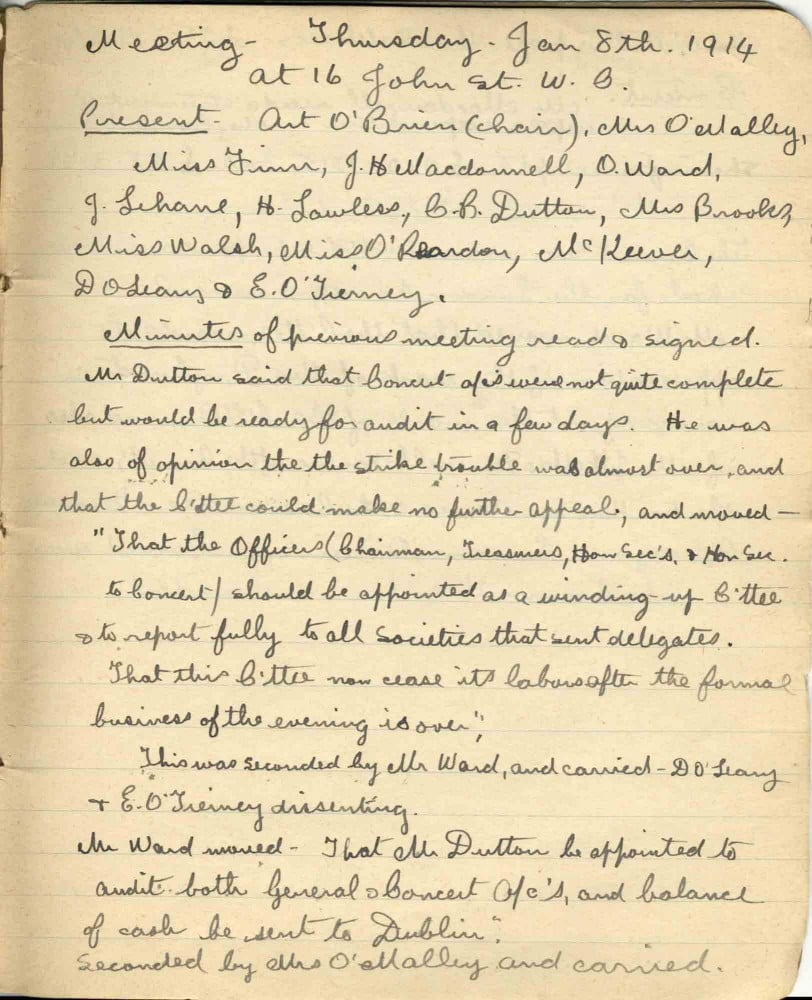 Meeting - Thursday - Jan 8th. 1914
at 16 John St. W.C.
Present - Art O'Brien (chair), Mrs O'Malley,
Miss Finn, J. H Macdonnell, O. Ward,
J. Lehane, H. Lawless, C. B. Dutton, Mrs Brooks,
Miss Walsh, Miss O'Reardon, McKeever,
D O'Leary & E. O'Tierney.
Minutes of previous meeting read & signed.
Mr Dutton said that Concert a/cs were not quite complete
but would be ready for audit in a few days. He was
also of opinion the the strike trouble was almost over, and
that the C'ttee could make no further appeal, and moved —
"That the Officers (Chairman, Treasurers, Hon Sec's, & Hon Sec.
to Concert) should be appointed as a winding-up C'ttee
& to report fully to all Societies that sent delegates.
That this C'ttee now cease its labors after the formal
business of the evening is over",
This was seconded by Mr Ward, and carried - D O'Leary
& E. O'Tierney dissenting.
Mr Ward moved - That Mr Dutton be appointed to
audit both General & Concert A/c's, and balance
of cash be sent to Dublin".
Seconded by Mrs O'Malley and carried.